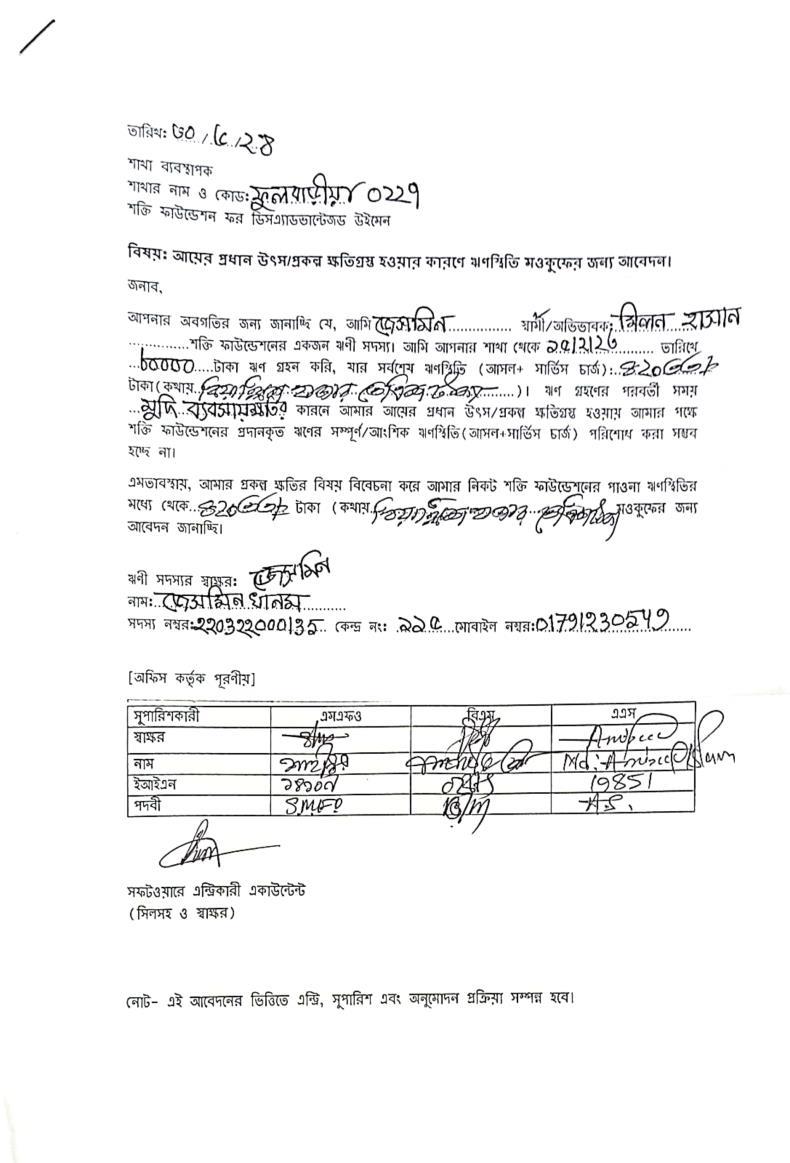 তারিখ: ৩০/৫/২৪
শাখা ব্যবস্থাপক
শাখার নাম ও কোড: ফুলবাড়ীয়া 0229
শক্তি ফাউন্ডেশন ফর ডিসএ্যাডভান্টেজড উইমেন
বিষয়: আয়ের প্রধান উৎস/প্রকল্প ক্ষতিগ্রস্থ হওয়ার কারণে ঋণস্থিতি মওকুফের জন্য আবেদন।
জনাব,
আপনার অবগতির জন্য জানাচ্ছি যে, আমি জেসমিন................ স্বামী/অভিভাবক: মিলন হাসান
...............শক্তি ফাউন্ডেশনের একজন ঋণী সদস্য। আমি আপনার শাখা থেকে .......... তারিখে
...৮০০০০.....টাকা ঋণ গ্রহন করি, যার সর্বশেষ ঋণস্থিতি (আসল+ সার্ভিস চার্জ):
টাকা (কথায়.......)। ঋণ গ্রহণের পরবর্তী সময়
...মুদি ব্যবসায় ক্ষতির কারনে আমার আয়ের প্রধান উৎস/প্রকল্প ক্ষতিগ্রস্থ হওয়ায় আমার পক্ষে
শক্তি ফাউন্ডেশনের প্রদানকৃত ঋণের সম্পূর্ণ/আংশিক ঋণস্থিতি(আসল+সার্ভিস চার্জ) পরিশোধ করা সম্ভব
হচ্ছে না।
এমতাবস্থায়, আমার প্রকল্প ক্ষতির বিষয় বিবেচনা করে আমার নিকট শক্তি ফাউন্ডেশনের পাওনা ঋণস্থিতির
মধ্যে থেকে.. টাকা (কথায়. মওকুফের জন্য
আবেদন জানাচ্ছি।
ঋণী সদস্যর স্বাক্ষর: জেসমিন
নাম: জেসমিন খানম...........
সদস্য নম্বর: 22032200013৫.. কেন্দ্র নং: ..২২৫...মোবাইল নম্বর: 01791230549
[অফিস কর্তৃক পূরণীয়]
সুপারিশকারী এসএফও বিএম এএস
স্বাক্ষর
নাম Md:
ইআইএন 19851
পদবী S.MFO B/M A.S.
সফটওয়ারে এন্ট্রিকারী একাউন্টেন্ট
(সিলসহ ও স্বাক্ষর)
নোট- এই আবেদনের ভিত্তিতে এন্ট্রি, সুপারিশ এবং অনুমোদন প্রক্রিয়া সম্পন্ন হবে।